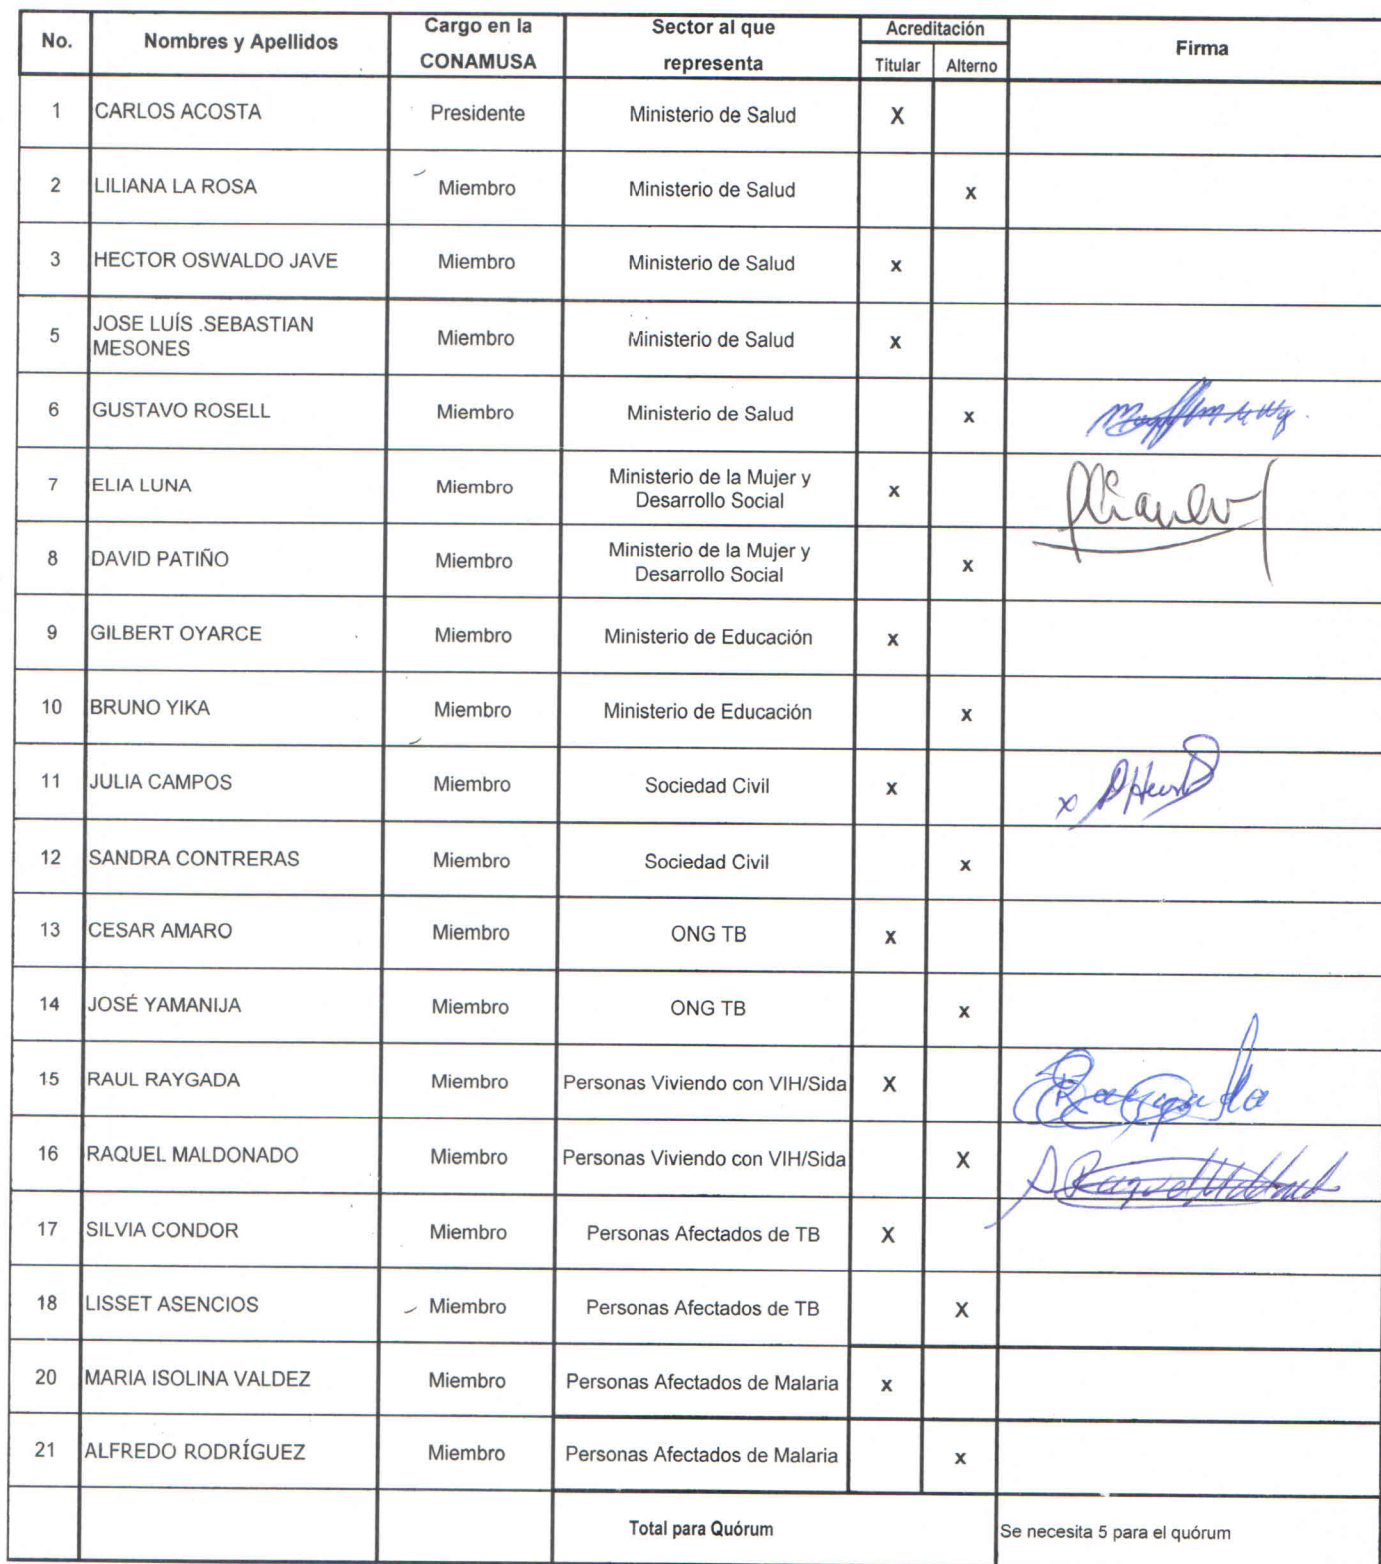 No. Nombres y Apellidos Cargo en la CONAMUSA Sector al que representa Acreditación Firma
Titular Alterno
1 CARLOS ACOSTA Presidente Ministerio de Salud X
2 LILIANA LA ROSA Miembro Ministerio de Salud x
3 HECTOR OSWALDO JAVE Miembro Ministerio de Salud x
5 JOSE LUÍS .SEBASTIAN MESONES Miembro Ministerio de Salud x
6 GUSTAVO ROSELL Miembro Ministerio de Salud x
7 ELIA LUNA Miembro Ministerio de la Mujer y Desarrollo Social x
8 DAVID PATIÑO Miembro Ministerio de la Mujer y Desarrollo Social x
9 GILBERT OYARCE Miembro Ministerio de Educación x
10 BRUNO YIKA Miembro Ministerio de Educación x
11 JULIA CAMPOS Miembro Sociedad Civil x x
12 SANDRA CONTRERAS Miembro Sociedad Civil x
13 CESAR AMARO Miembro ONG TB x
14 JOSÉ YAMANIJA Miembro ONG TB x
15 RAUL RAYGADA Miembro Personas Viviendo con VIH/Sida X
16 RAQUEL MALDONADO Miembro Personas Viviendo con VIH/Sida X
17 SILVIA CONDOR Miembro Personas Afectados de TB X
18 LISSET ASENCIOS Miembro Personas Afectados de TB X
20 MARIA ISOLINA VALDEZ Miembro Personas Afectados de Malaria x
21 ALFREDO RODRÍGUEZ Miembro Personas Afectados de Malaria x
Total para Quórum Se necesita 5 para el quórum